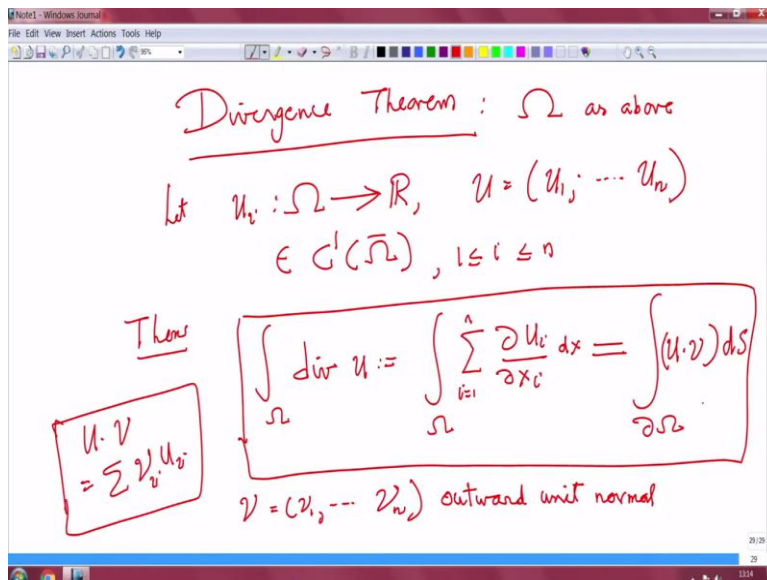 Note1 - Windows Journal
File Edit View Insert Actions Tools Help
95%
B I
Divergence Theorem : Ω as above
Let u_i : Ω → ℝ, u = (u_1, ---- u_n)
∈ C^1(Ω̄), 1 ≤ i ≤ n
Then
∫_Ω div u := ∫_Ω ∑_{i=1}^n ∂u_i/∂x_i dx = ∫_{∂Ω} (u·ν) dS
u·ν
= ∑ ν_i u_i
ν = (ν_1, --- ν_n) outward unit normal
29/29
29
13:14